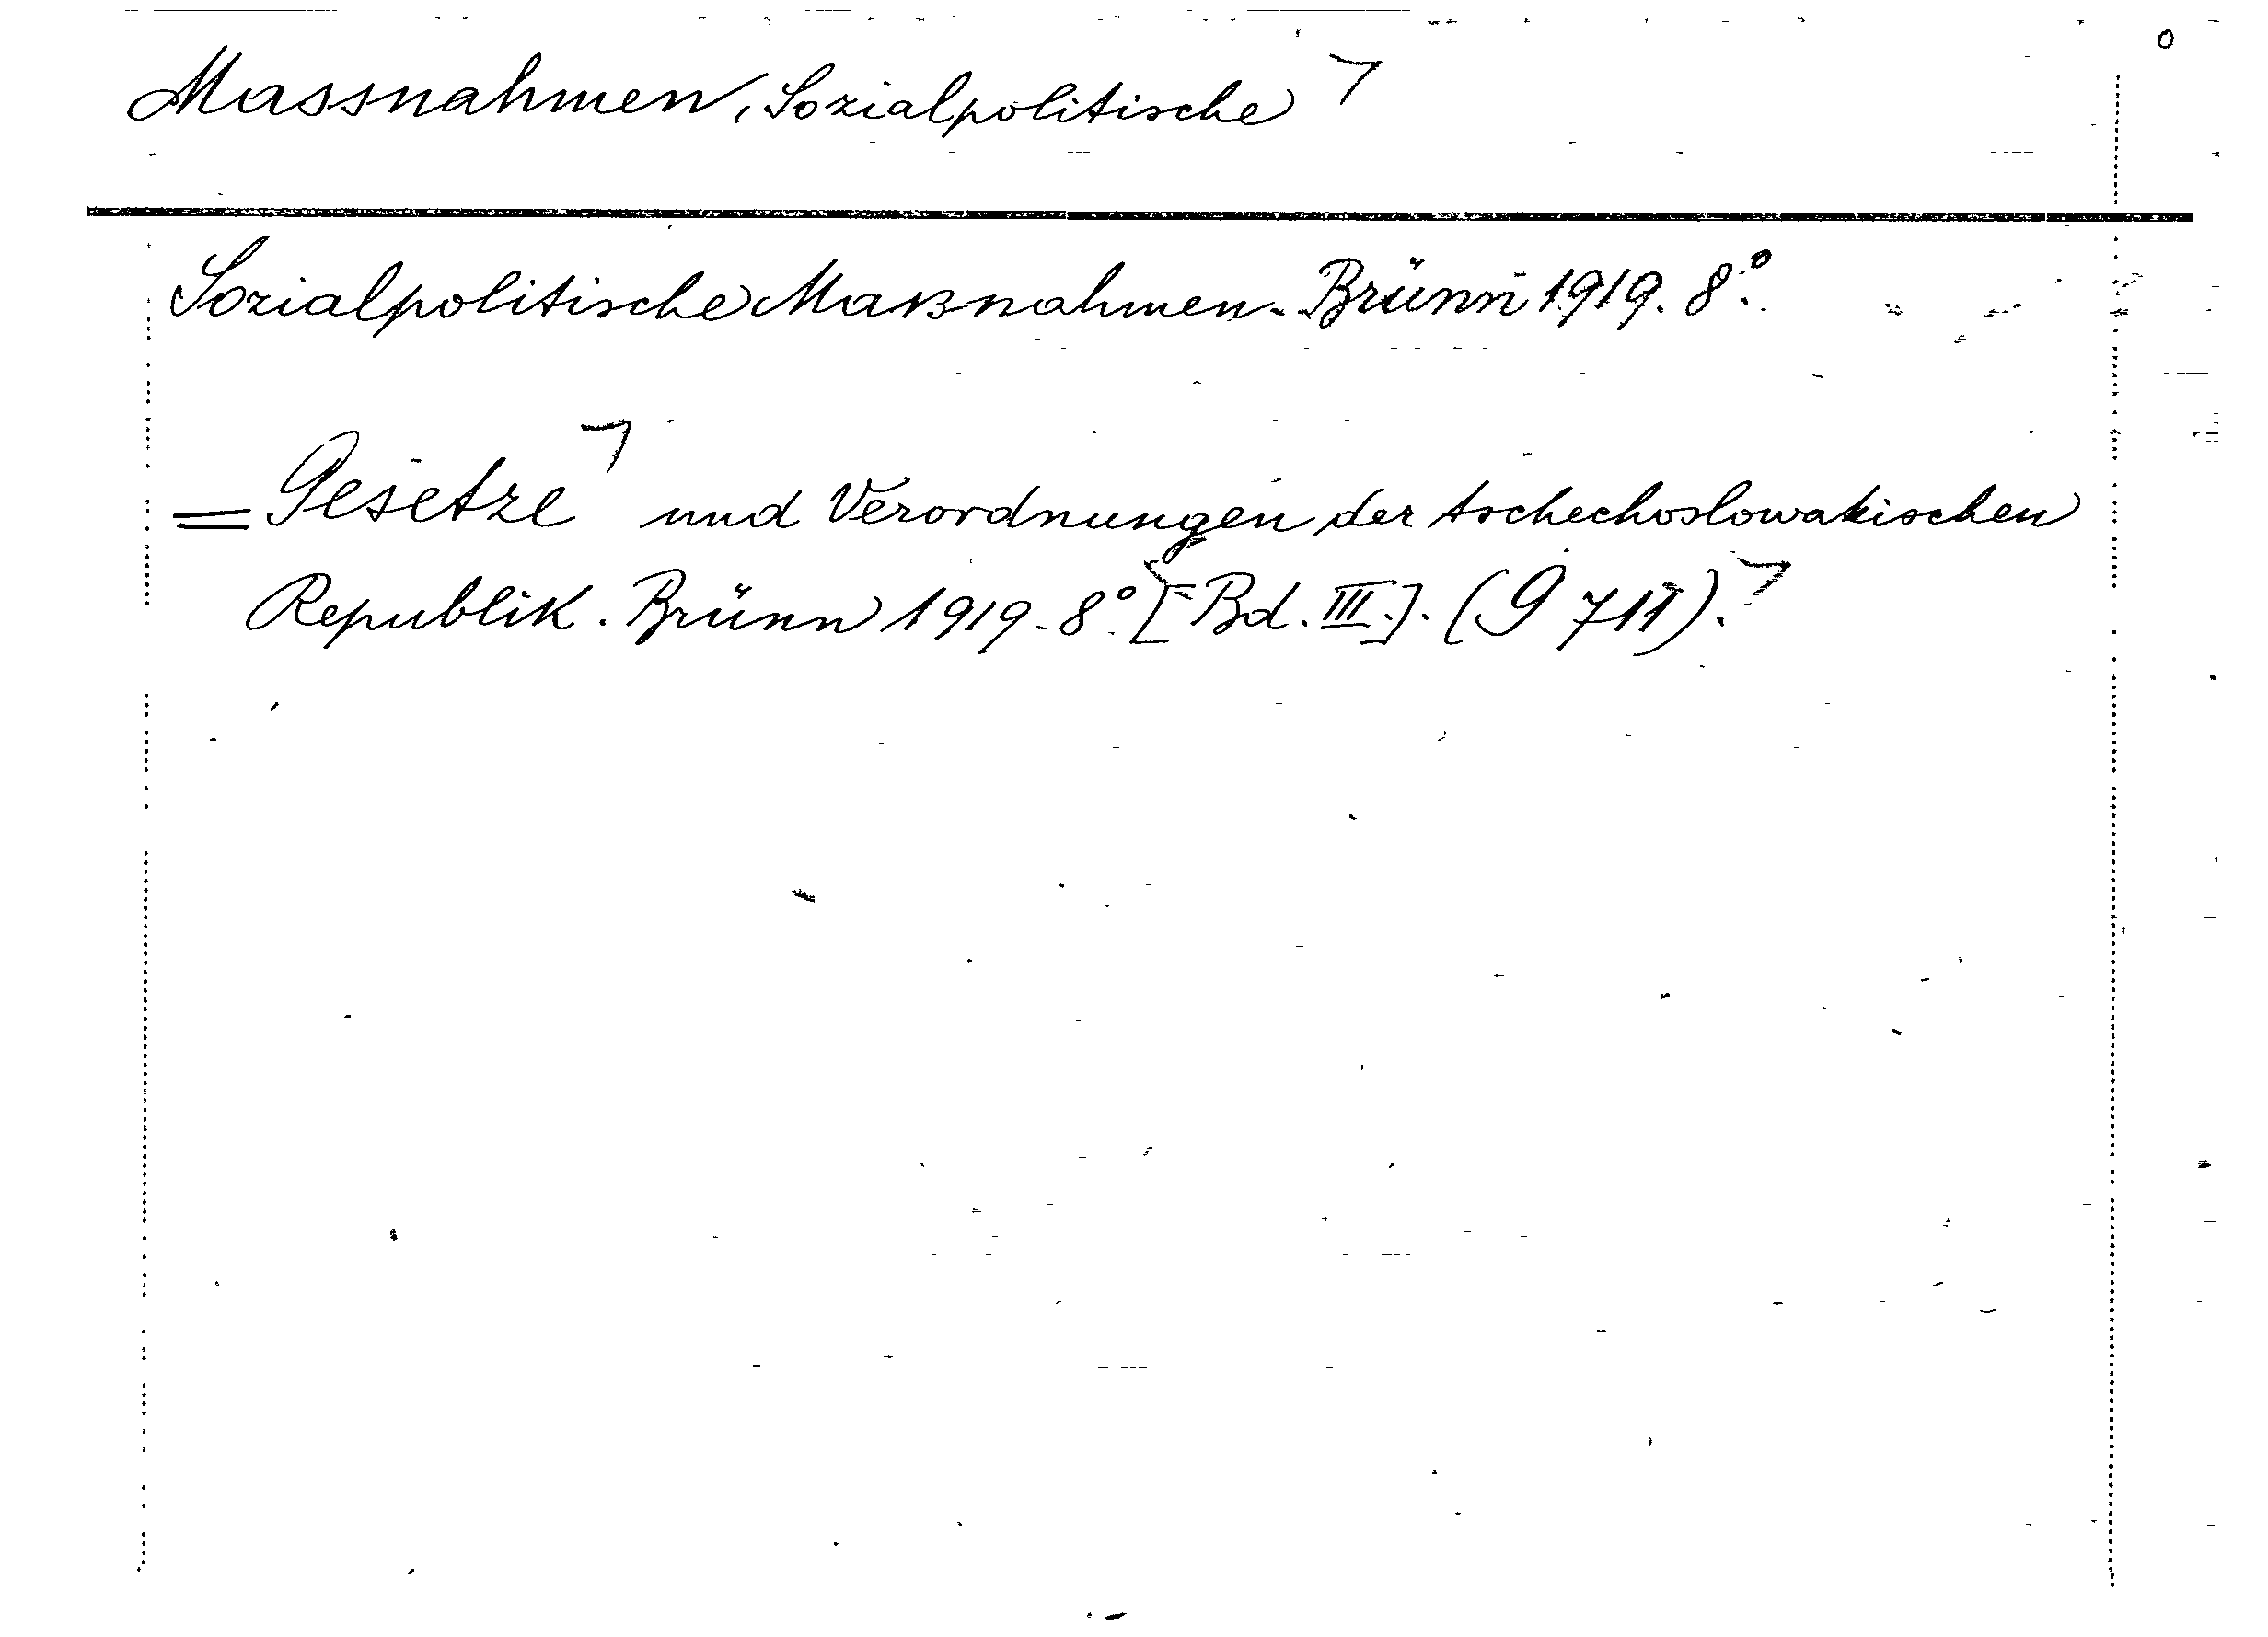 Massnahmen, Sozialpolitische ⌝
Sozialpolitische Maßnahmen. Brünn 1919. 8°.
= Gesetze ⌝ und Verordnungen der tschechoslowakischen
Republik. Brünn 1919. 8°. [Bd. III.]. (G 711). ⌝